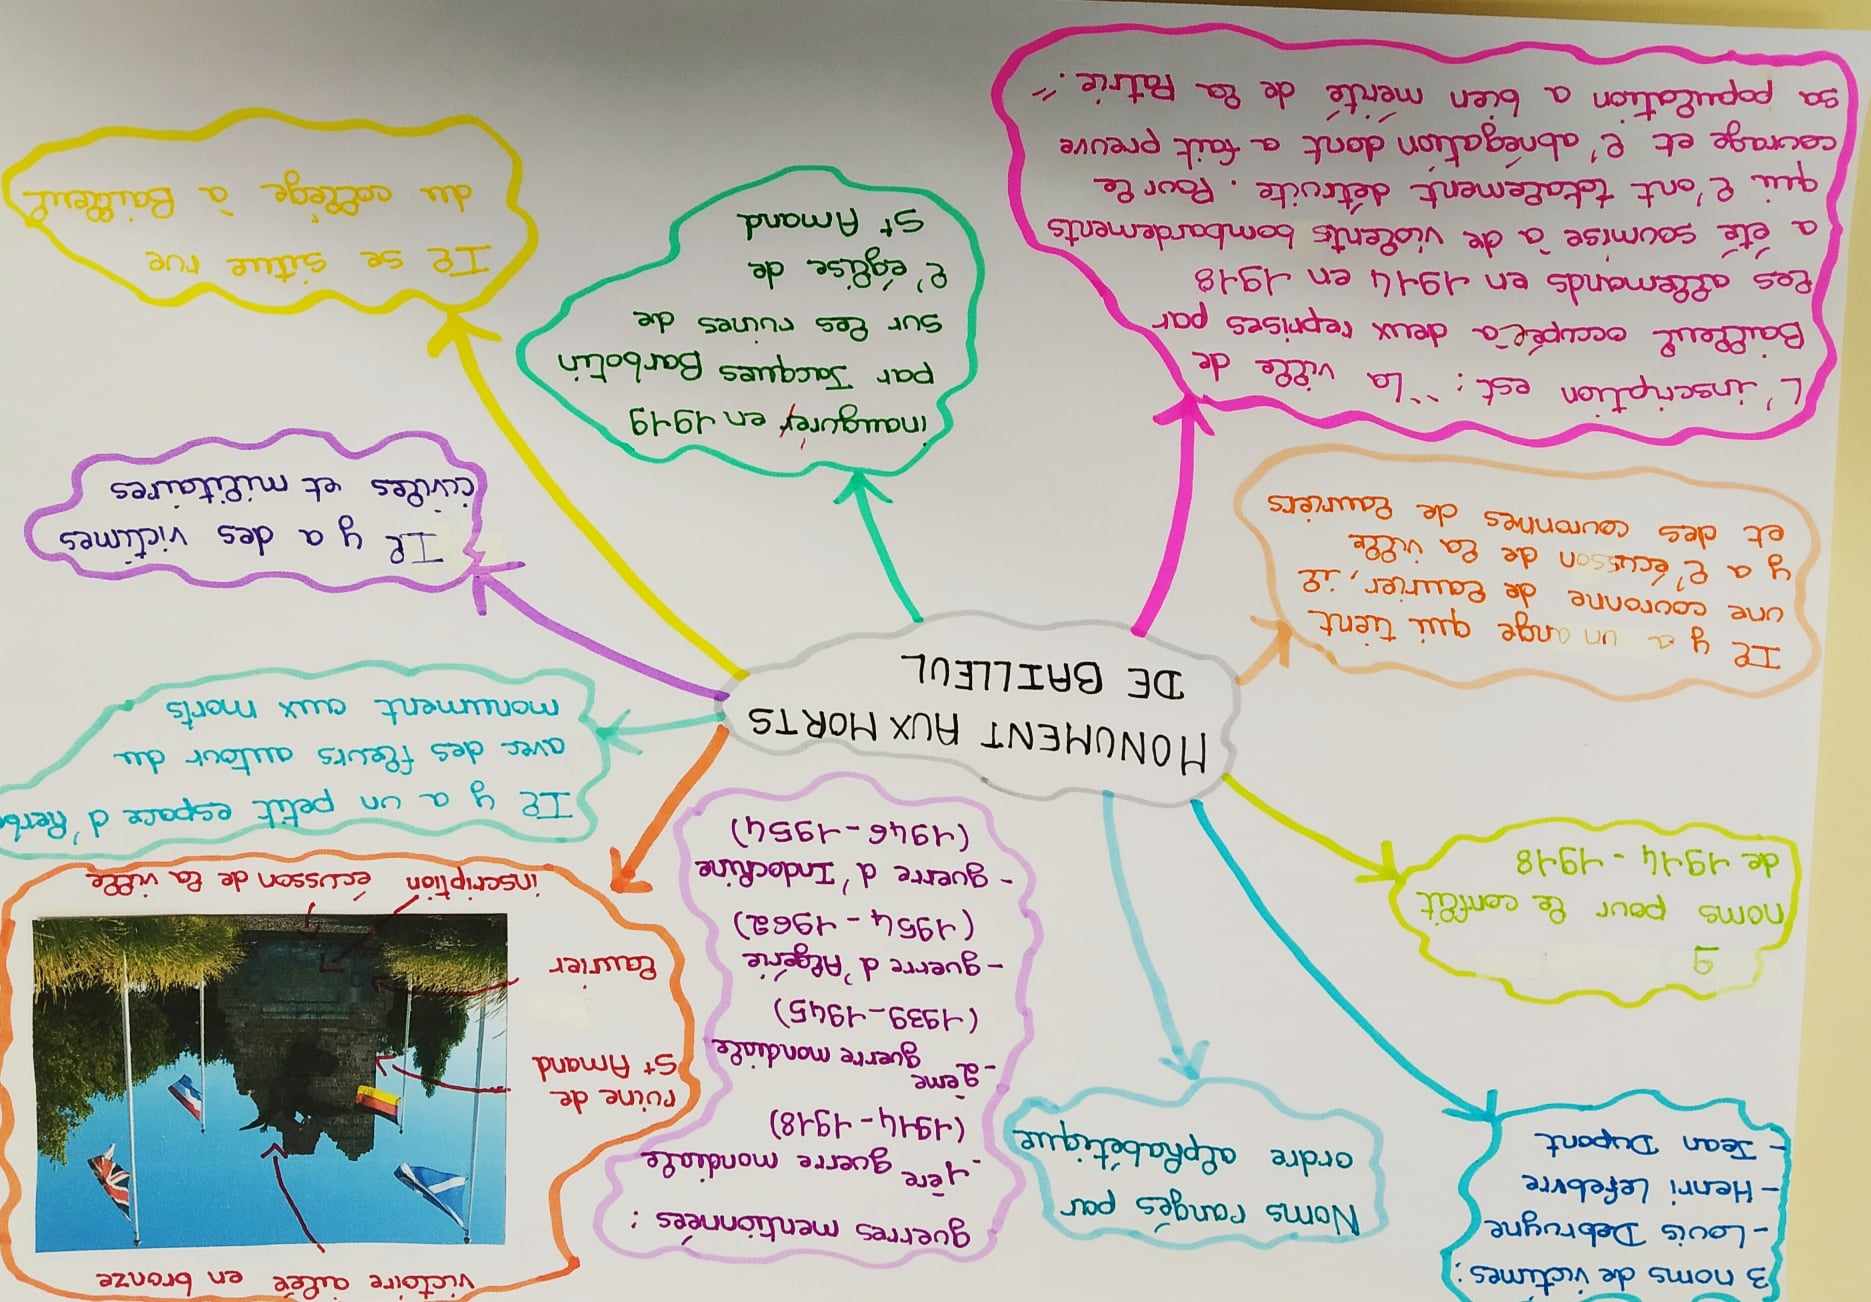 3 noms de victimes :
- Louis Debruyne
- Henri Lefebvre
- Jean Dupont
Noms rangés par
ordre alphabétique
guerres mentionnées :
- 1ère guerre mondiale
(1914-1918)
- 2ème
guerre mondiale
(1939-1945)
- guerre d'Algérie
(1954-1962)
- guerre d'Indochine
(1946-1954)
victoire ailée en bronze
ruine de
St Amand
laurier
inscription
écusson de la ville
9
noms pour le conflit
de 1914-1918
MONUMENT AUX MORTS
DE BAILLEUL
Il y a un petit espace d'herbe
avec des fleurs autour du
monument aux morts
Il y a un ange qui tient
une couronne de laurier, il
y a l'écusson de la ville
et des couronnes de lauriers
Il y a des victimes
civiles et militaires
L'inscription est : "La ville de
Bailleul occupée à deux reprises par
les allemands en 1914 en 1918
a été soumise à de violents bombardements
qui l'ont totalement détruite. Pour le
courage et l'abnégation dont a fait preuve
sa population a bien mérité de la Patrie."
inaugurer en 1919
par Jacques Barbotin
sur les ruines de
l'église de
St Amand
Il se situe rue
du collège à Bailleul